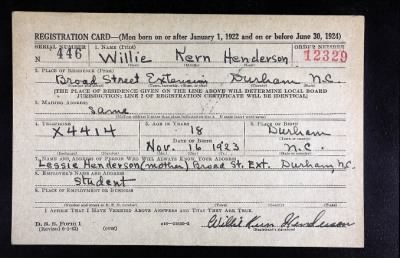 REGISTRATION CARD—(Men born on or after January 1, 1922 and on or before June 30, 1924)
SERIAL NUMBER 1. NAME (Print) ORDER NUMBER
N 446 Willie Kern Henderson 12329
(First) (Middle) (Last)
2. PLACE OF RESIDENCE (Print)
Broad Street Extension Durham N.C.
(THE PLACE OF RESIDENCE GIVEN ON THE LINE ABOVE WILL DETERMINE LOCAL BOARD
JURISDICTION; LINE 2 OF REGISTRATION CERTIFICATE WILL BE IDENTICAL)
3. MAILING ADDRESS
Same
4. TELEPHONE 5. AGE IN YEARS 6. PLACE OF BIRTH
X4414 18 Durham
DATE OF BIRTH
Nov. 16 1923 N.C.
7. NAME AND ADDRESS OF PERSON WHO WILL ALWAYS KNOW YOUR ADDRESS
Lessie Henderson (mother) Broad St. Ext. Durham, N.C.
8. EMPLOYER'S NAME AND ADDRESS
Student
9. PLACE OF EMPLOYMENT OR BUSINESS
I AFFIRM THAT I HAVE VERIFIED ABOVE ANSWERS AND THAT THEY ARE TRUE.
D. S. S. Form 1
(over) Willie Kern Henderson
(Registrant's signature)